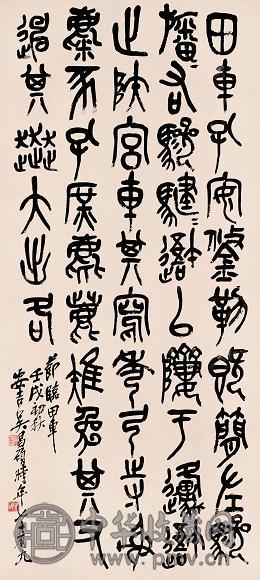 田車孔安鋚勒既簡左驂
旛右驂騝避以隮于邍避
止陜宮車其寫秀弓寺射
麋豕孔庶麀鹿雉兔其又
其奔大出各
節臨田車
壬戌初秋
安吉吳昌碩時年
七十九